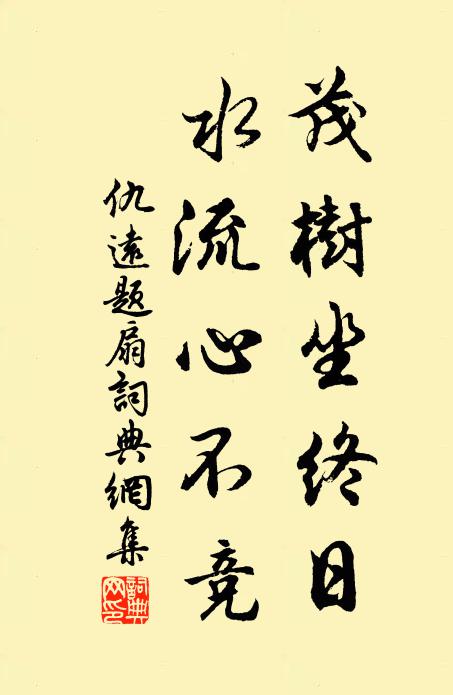 茂樹坐終日
水流心不競
仇遠題扇詞典網集
詞典網印